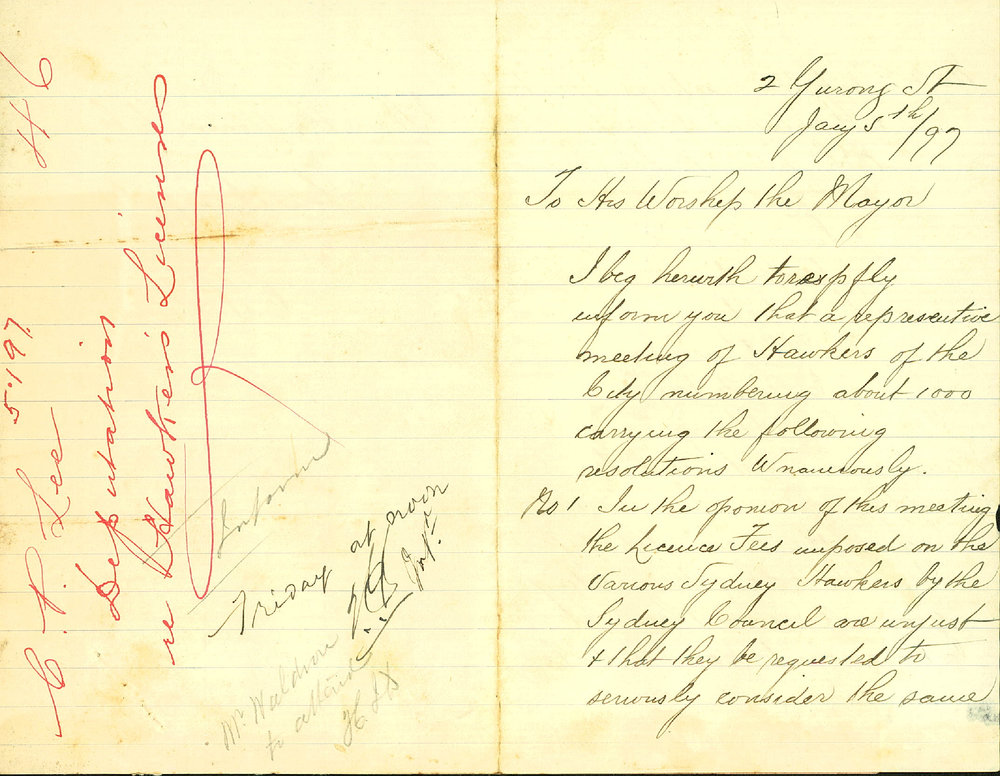 46
C. P. Lee 5.1.97.
Deputation
re Hawker's Licenses
Inform
Friday at noon
Mr Waldron
to attend
2 Yurong St
Jany 5th/97
To His Worship the Mayor
I beg herwith
inform you that a representive
meeting of Hawkers of the
City numbering about 1000
carrying the following
resolutions Unanmously.
No 1 In the oponion of this meeting
the Licence Fees imposed on the
Various Sydney Hawkers by the
Sydney Council are unjust
& that they be requested to
seriously consider the same